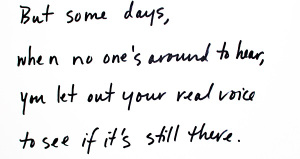 But some days,
when no one's around to hear,
you let out your real voice
to see if it's still there.